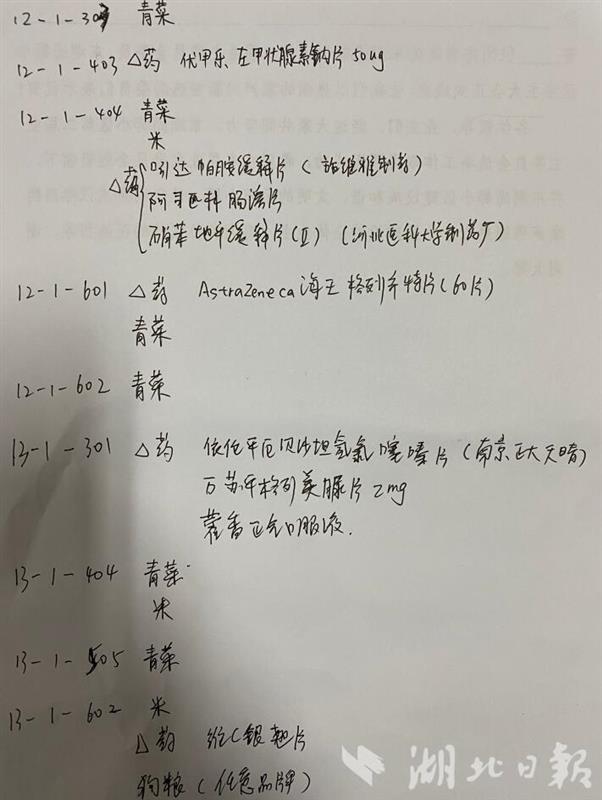 12-1-303 青菜
12-1-403 △药 优甲乐 左甲状腺素钠片 50ug
12-1-404 青菜
米
△药 吲达帕胺缓释片（
阿司匹林肠溶片
硝苯地平缓释片(Ⅱ)（河北医科大学制药厂）
12-1-601 △药 AstraZeneca 海王 格列齐特片(60片)
青菜
12-1-602 青菜
13-1-301 △药 依伦平厄贝沙坦氢氯噻嗪片（南京正大天晴）
万苏平格列美脲片 2mg
藿香正气口服液.
13-1-404 青菜
米
13-1-505 青菜
13-1-602 米
△药 维C银翘片
狗粮（任意品牌）
湖北日報